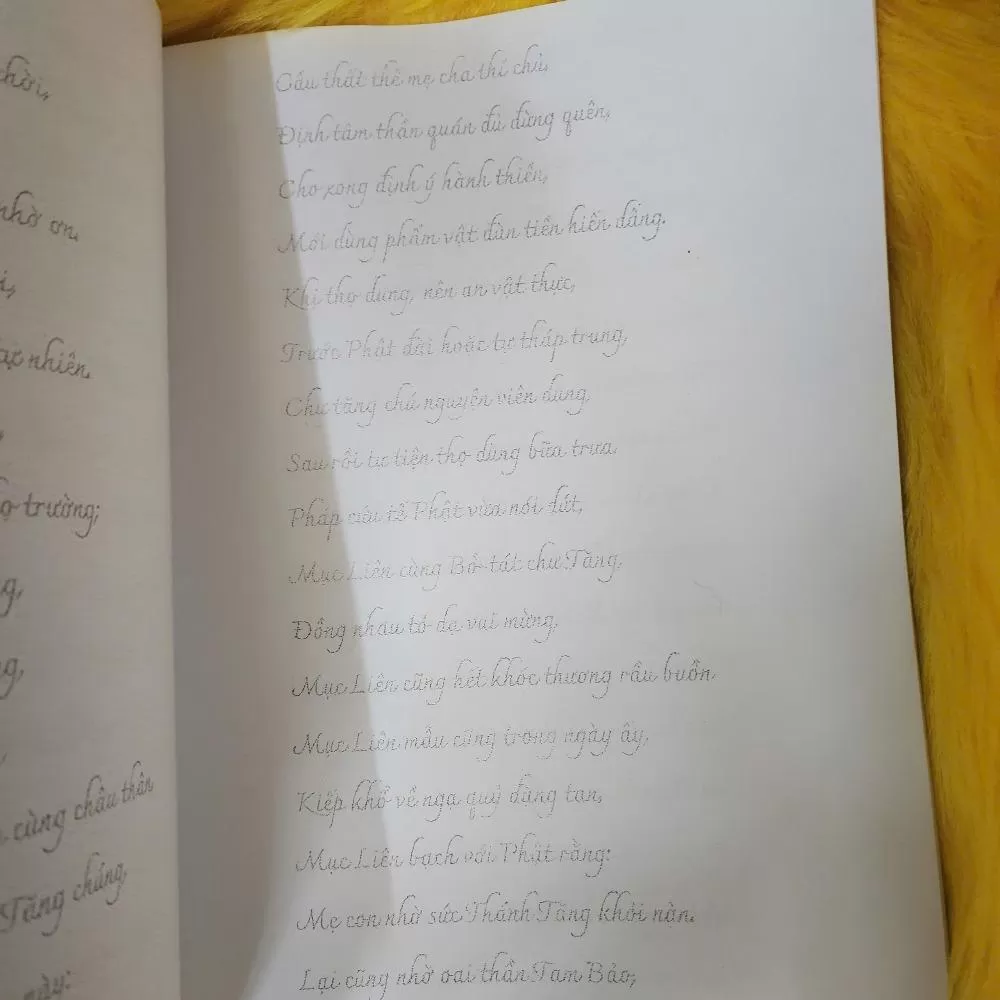 chời,
nhờ ơn.
nhiên.
trường;
cùng châu thân
Tăng chúng,
này:
Cầu thất thế mẹ cha thí chủ,
Định tâm thần quán đủ đừng quên,
Cho xong định ý hành thiền,
Mới dùng phẩm vật đàn tiền hiến dâng.
Khi thọ dụng, nên an vật thực,
Trước Phật đài hoặc tự tháp trung,
Chư tăng chú nguyện viên dung,
Sau rồi tự tiện thọ dùng bữa trưa.
Pháp cứu tế Phật vừa nói dứt,
Mục Liên cùng Bồ-tát chư Tăng,
Đồng nhau tỏ dạ vui mừng,
Mục Liên cũng hết khóc thương rầu buồn.
Mục Liên mẫu cũng trong ngày ấy,
Kiếp khổ về ngạ quỷ đặng tan,
Mục Liên bạch với Phật rằng:
Mẹ con nhờ sức Thánh Tăng khỏi nàn.
Lại cũng nhờ oai thần Tam Bảo,